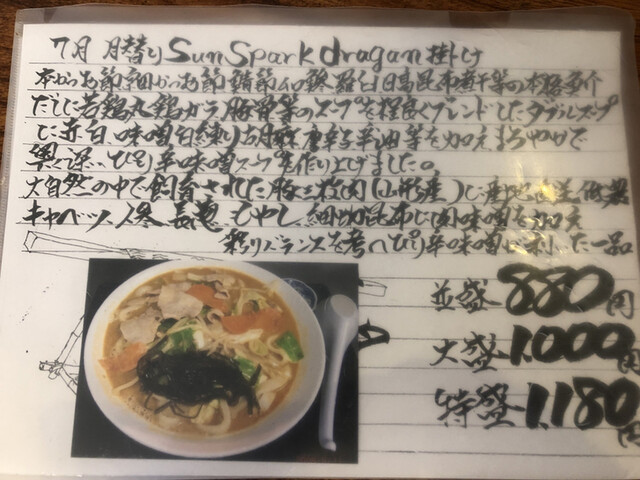 7月 月替り Sun Spark dragan 掛け
本かつお節、細かつお節、鯖節、ムロ鯵、羅臼、日高昆布、煮干等の本格魚介
だしに若鶏丸鶏ガラ豚骨等のスープを程良くブレンドしたダブルスープ
に赤白味噌白練り胡麻唐辛子辛油等を加えまろやかで
ぴり辛味噌スープを作り上げました。
大自然の中で飼育された豚三枚肉(山形産)に産地直送低農
キャベツ、人参、長葱、もやし、細切昆布に肉味噌を加え
彩りバランスを考へぴり辛味噌に利した一品
並盛 880円
大盛 1.000円
特盛 1.180円